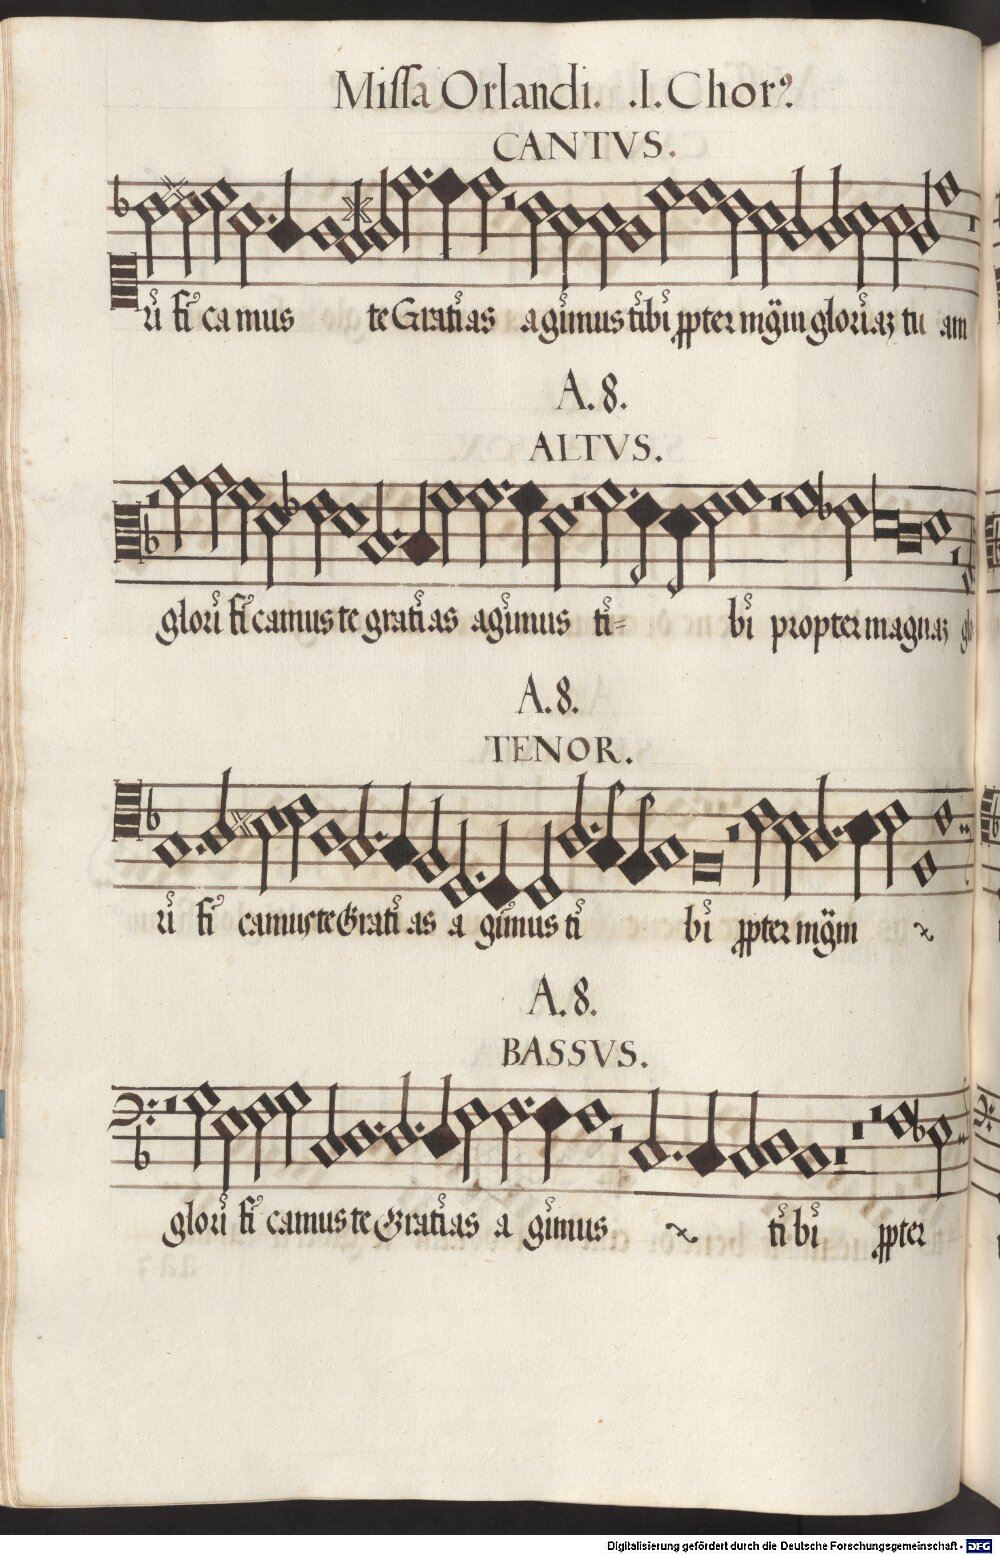 Missa Orlandi. .I. Chorꝰ.
CANTVS.
rifi camus te Gratias agimus tibi ꝓpter mg̃m gloriaꝫ tu am
A. 8.
ALTVS.
glorificamus te gratias agimus ti= bi propter magnaꝫ
A. 8.
TENOR.
ri fi camus te Gratias a gimus ti bi ꝓpter mg̃m
A. 8.
BASSVS.
glorificamus te Gratias a gimus tibi ꝓpter
Digitalisierung gefördert durch die Deutsche Forschungsgemeinschaft - DFG